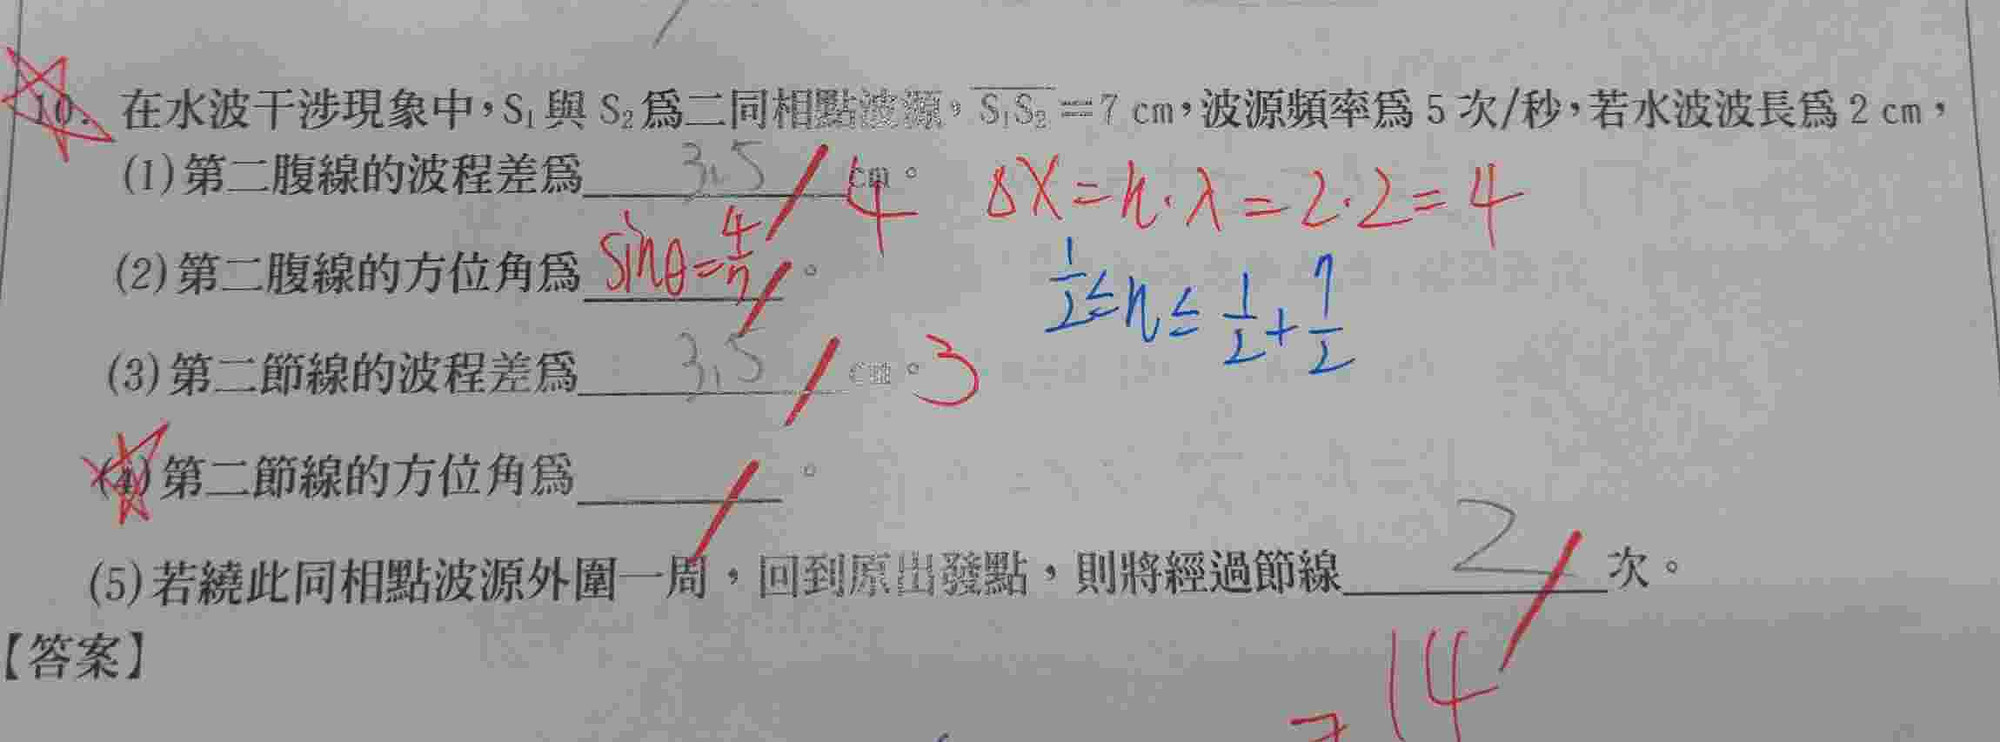 10. 在水波干涉現象中，S₁與 S₂ 爲二同相點波源，S₁S₂＝7 cm，波源頻率爲 5 次/秒，若水波波長爲 2 cm，
(1)第二腹線的波程差爲 3.5 cm。 4 ΔX=n·λ=2·2=4
(2)第二腹線的方位角爲 sinθ=4/7 。 1/2≤n≤1/2+7/2
(3)第二節線的波程差爲 3.5 cm。3
(4)第二節線的方位角爲 。
(5)若繞此同相點波源外圍一周，回到原出發點，則將經過節線 2 次。
14
【答案】